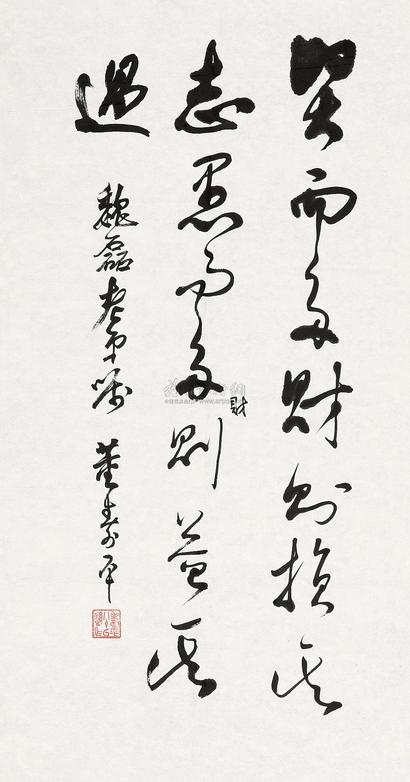 賢而多財則損其
志愚而多財則益其
過
魏磊老弟嘱 董壽平